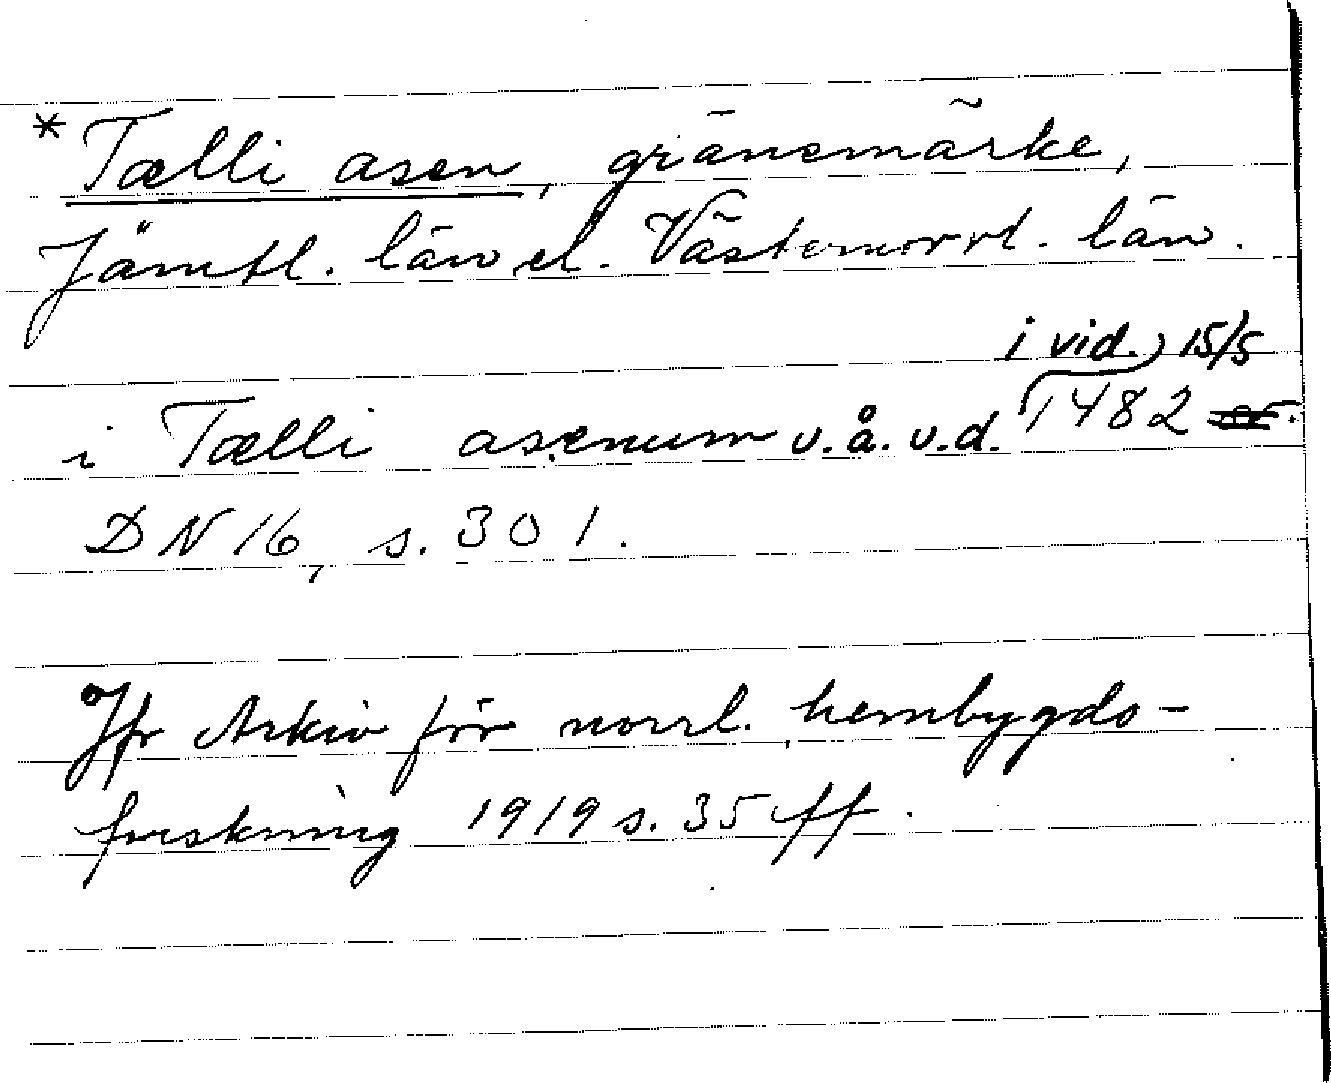 * Tælli asen, gränsmärke,
Jämtl. län el. Västernorrl. län.
i vid. 15/5
i Tælli asenum u.å. u.d. 1482
DN 16, s. 301.
Jfr Arkiv för norrl. hembygds-
forskning 1919 s. 35 ff.